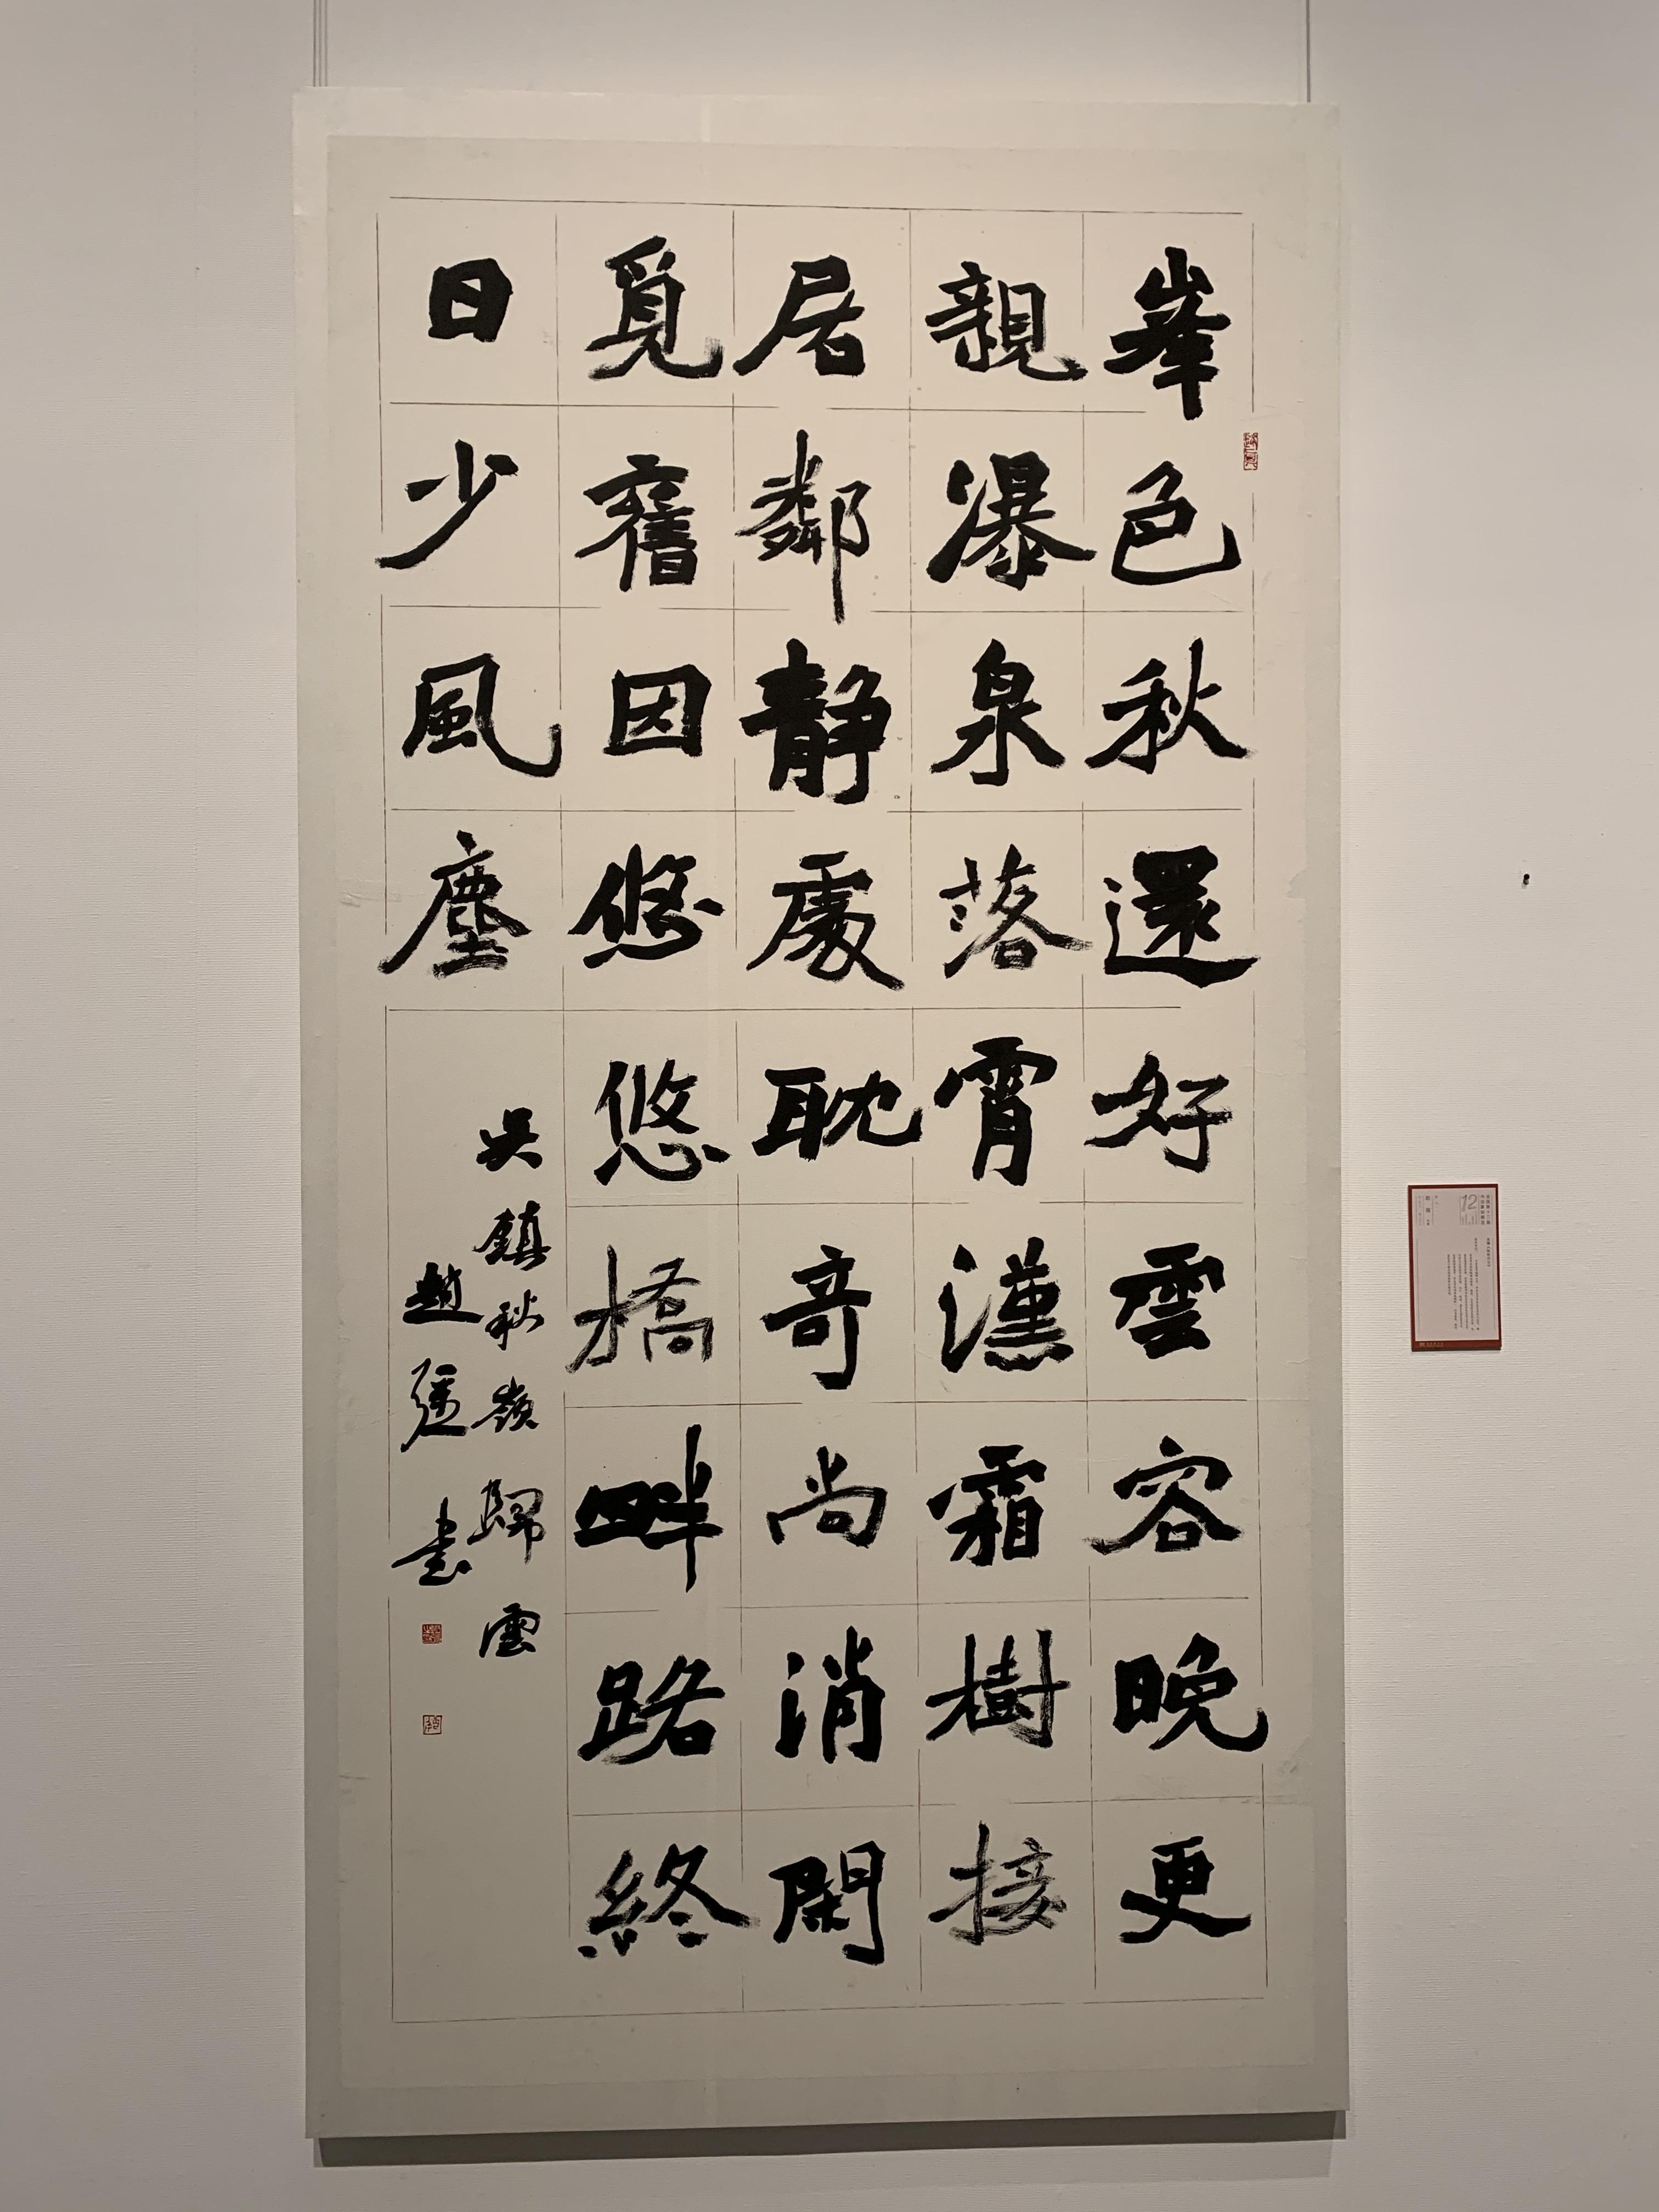 峯色秋還好雲容晚更
親瀑泉落霄漢霜樹接
居鄰静處耽奇尚消閑
覓舊因悠悠橋畔路終
日少風塵
吴鎮秋嶺歸雲
趙彊書
12